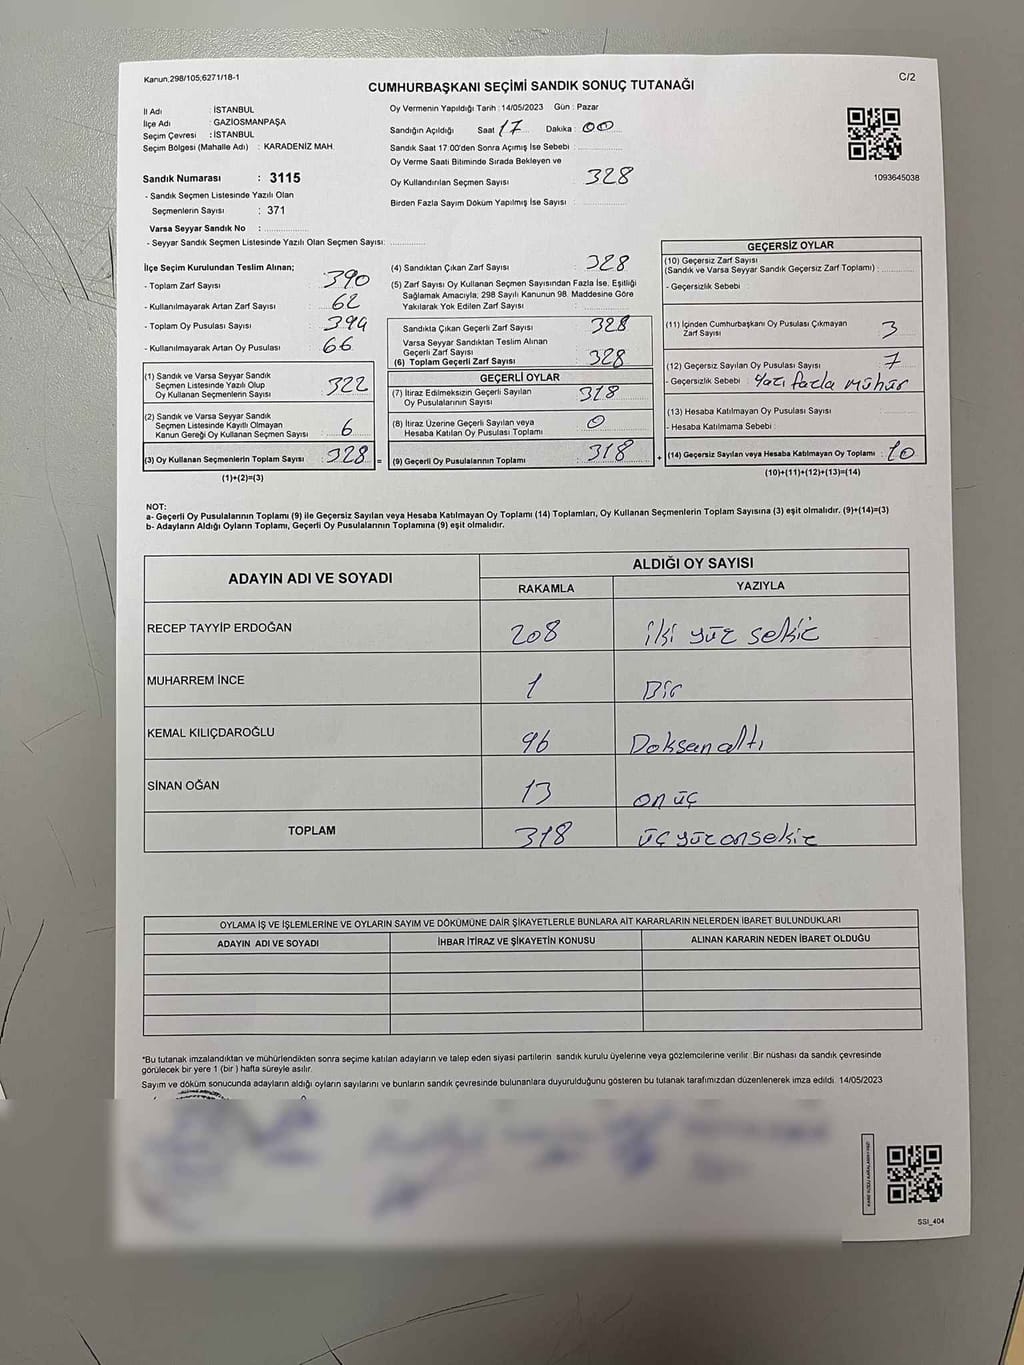 Kanun,298/105;6271/18-1
C/2
CUMHURBAŞKANI SEÇİMİ SANDIK SONUÇ TUTANAĞI
İl Adı : İSTANBUL
İlçe Adı : GAZİOSMANPAŞA
Seçim Çevresi : İSTANBUL
Seçim Bölgesi (Mahalle Adı) : KARADENİZ MAH.
Sandık Numarası : 3115
- Sandık Seçmen Listesinde Yazılı Olan
Seçmenlerin Sayısı : 371
Varsa Seyyar Sandık No :
- Seyyar Sandık Seçmen Listesinde Yazılı Olan Seçmen Sayısı:
Oy Vermenin Yapıldığı Tarih : 14/05/2023 Gün : Pazar
Sandığın Açıldığı Saat 17 Dakika : 00
Sandık Saat 17:00'den Sonra Açımış İse Sebebi :
Oy Verme Saati Bitiminde Sırada Bekleyen ve
Oy Kullandırılan Seçmen Sayısı : 328
Birden Fazla Sayım Döküm Yapılmış İse Sayısı :
1093645038
İlçe Seçim Kurulundan Teslim Alınan;
- Toplam Zarf Sayısı : 390
- Kullanılmayarak Artan Zarf Sayısı : 62
- Toplam Oy Pusulası Sayısı : 394
- Kullanılmayarak Artan Oy Pusulası : 66
(1) Sandık ve Varsa Seyyar Sandık
Seçmen Listesinde Yazılı Olup
Oy Kullanan Seçmenlerin Sayısı : 322
(2) Sandık ve Varsa Seyyar Sandık
Seçmen Listesinde Kayıtlı Olmayan
Kanun Gereği Oy Kullanan Seçmen Sayısı : 6
(3) Oy Kullanan Seçmenlerin Toplam Sayısı : 328 =
(1)+(2)=(3)
(4) Sandıktan Çıkan Zarf Sayısı : 328
(5) Zarf Sayısı Oy Kullanan Seçmen Sayısından Fazla İse, Eşitliği
Sağlamak Amacıyla, 298 Sayılı Kanunun 98. Maddesine Göre
Yakılarak Yok Edilen Zarf Sayısı :
Sandıkta Çıkan Geçerli Zarf Sayısı : 328
Varsa Seyyar Sandıktan Teslim Alınan
Geçerli Zarf Sayısı :
(6) Toplam Geçerli Zarf Sayısı : 328
GEÇERLİ OYLAR
(7) İtiraz Edilmeksizin Geçerli Sayılan
Oy Pusulalarının Sayısı : 318
(8) İtiraz Üzerine Geçerli Sayılan veya
Hesaba Katılan Oy Pusulası Toplamı : 0
(9) Geçerli Oy Pusulalarının Toplamı : 318 +
GEÇERSİZ OYLAR
(10) Geçersiz Zarf Sayısı
(Sandık ve Varsa Seyyar Sandık Geçersiz Zarf Toplamı) :
- Geçersizlik Sebebi :
(11) İçinden Cumhurbaşkanı Oy Pusulası Çıkmayan
Zarf Sayısı : 3
(12) Geçersiz Sayılan Oy Pusulası Sayısı : 7
- Geçersizlik Sebebi : Yazı fazla mühür
(13) Hesaba Katılmayan Oy Pusulası Sayısı
- Hesaba Katılmama Sebebi :
(14) Geçersiz Sayılan veya Hesaba Katılmayan Oy Toplamı : 10
(10)+(11)+(12)+(13)=(14)
NOT:
a- Geçerli Oy Pusulalarının Toplamı (9) ile Geçersiz Sayılan veya Hesaba Katılmayan Oy Toplamı (14) Toplamları, Oy Kullanan Seçmenlerin Toplam Sayısına (3) eşit olmalıdır. (9)+(14)=(3)
b- Adayların Aldığı Oyların Toplamı, Geçerli Oy Pusulalarının Toplamına (9) eşit olmalıdır.
ADAYIN ADI VE SOYADI ALDIĞI OY SAYISI
RAKAMLA YAZIYLA
RECEP TAYYİP ERDOĞAN 208 iki yüz sekiz
MUHARREM İNCE 1 Bir
KEMAL KILIÇDAROĞLU 96 Doksanaltı
SİNAN OĞAN 13 on üç
TOPLAM 318 üç yüz onsekiz
OYLAMA İŞ VE İŞLEMLERİNE VE OYLARIN SAYIM VE DÖKÜMÜNE DAİR ŞİKAYETLERLE BUNLARA AİT KARARLARIN NELERDEN İBARET BULUNDUKLARI
ADAYIN ADI VE SOYADI İHBAR İTİRAZ VE ŞİKAYETİN KONUSU ALINAN KARARIN NEDEN İBARET OLDUĞU
*Bu tutanak imzalandıktan ve mühürlendikten sonra seçime katılan adayların ve talep eden siyasi partilerin sandık kurulu üyelerine veya gözlemcilerine verilir. Bir nüshası da sandık çevresinde
görülecek bir yere 1 (bir ) hafta süreyle asılır.
Sayım ve döküm sonucunda adayların aldığı oyların sayılarını ve bunların sandık çevresinde bulunanlara duyurulduğunu gösteren bu tutanak tarafımızdan düzenlenerek imza edildi. 14/05/2023
SSI_404